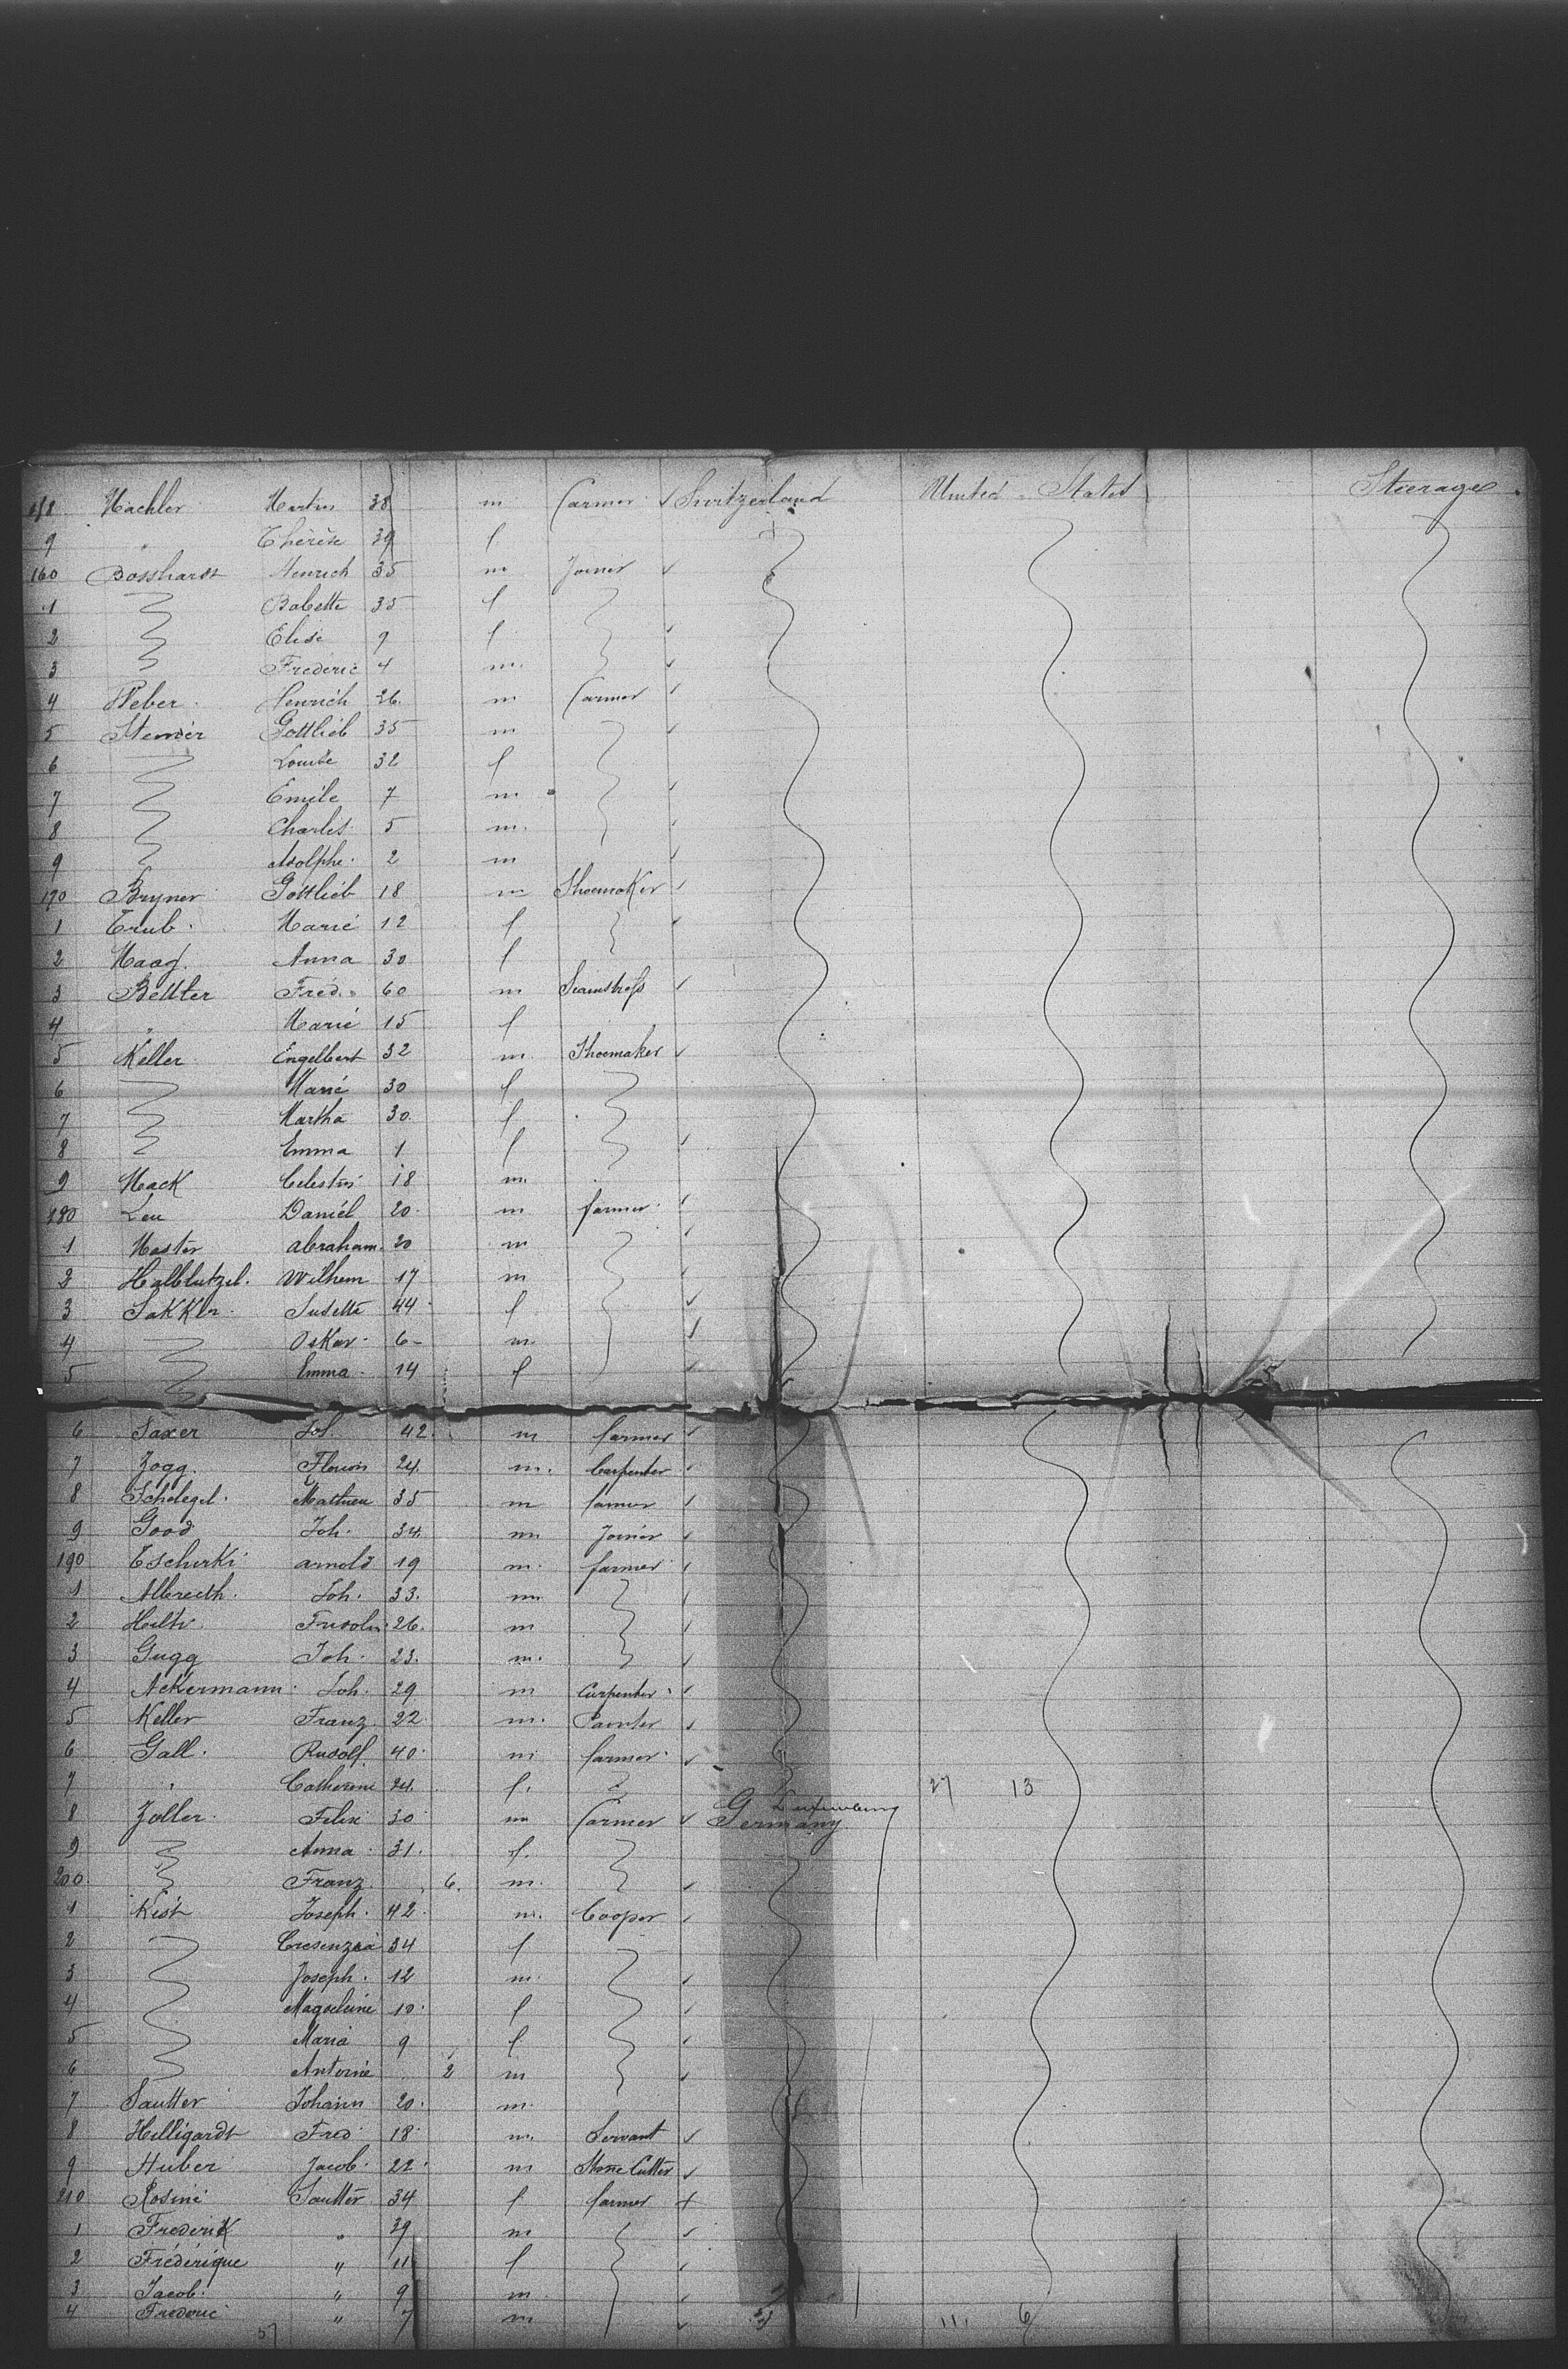 158 Machler Martin 38 m farmer ✓ Switzerland United States Steerage
9 " Thérèse 39 f
160 Bosshardt Henrich 35 m Joiner ✓
1 Babette 35 f
2 Elise 9 f ✓
3 Frederic 4 m. ✓
4 Weber. Henrich 26. m farmer ✓
5 Gottlieb 35 m ✓
6 Louise 32 f
7 Emile 7 m ✓
8 Charles 5 m. ✓
9 Adolphe. 2 m ✓
170 Bryner Gottlieb 18 m Shoemaker ✓
1 Trub. Marie 12 f ✓
2 Haag. Anna 30 f
3 Fred. 60 m Seamstress ✓
4 " Marie 15 f
5 Keller Engelbert 32 m Shoemaker ✓
6 Marie 30 f
7 Martha 30. f
8 Emma 1 f ✓
9 Mack Celestin 18 m.
180 Leu Daniél 20. m farmer. ✓
1 abraham. 20 m ✓
2 Halblutzel. Wilhem 17 m ✓
3 Susette 44 f ✓
4 Oskar. 6 m. ✓
5 Emma. 14 f ✓
6 Saxer Joh. 42. m farmer ✓
7 Zogg. Florian 24. m. Carpenter ✓
8 Schelegel. Mathieu 35 m farmer ✓
9 Good Joh. 34. m Joiner ✓
190 arnold 19 m. farmer ✓
1 Albrecth. Joh. 33. m ✓
2 Fridolin 26. m ✓
3 Gugg Joh. 23. m. ✓
4 Ackermann. Joh. 29 m Carpenter. ✓
5 Keller Franz. 22 m. Painter ✓
6 Gall. Rudolf 40. m farmer. ✓
7 " Catherine 24. f. 27 13
8 Zoller. Felix 30 m farmer ✓ Germany
9 Anna 31. f.
200 Franz. 6. m. ✓
1 Kist Joseph. 42. m. Cooper ✓
2 Cresenzia 34 f
3 Joseph. 12 m. ✓
4 Magdeleine 10. f ✓
5 Maria 9 f ✓
6 Antoine 2 m ✓
7 Sautter Johann 20. m.
8 Hilligardt Fred 18. m. Servant ✓
9 Huber Jacob. 22. m Stone Cutter ✓
210 Rosine Sautter 34 f farmer +
1 Frederik " 39 m ✓
2 Frédérique " 11 f ✓
3 Jacob. " 9 m ✓
4 Frederic " 7 m ✓
57 111 6